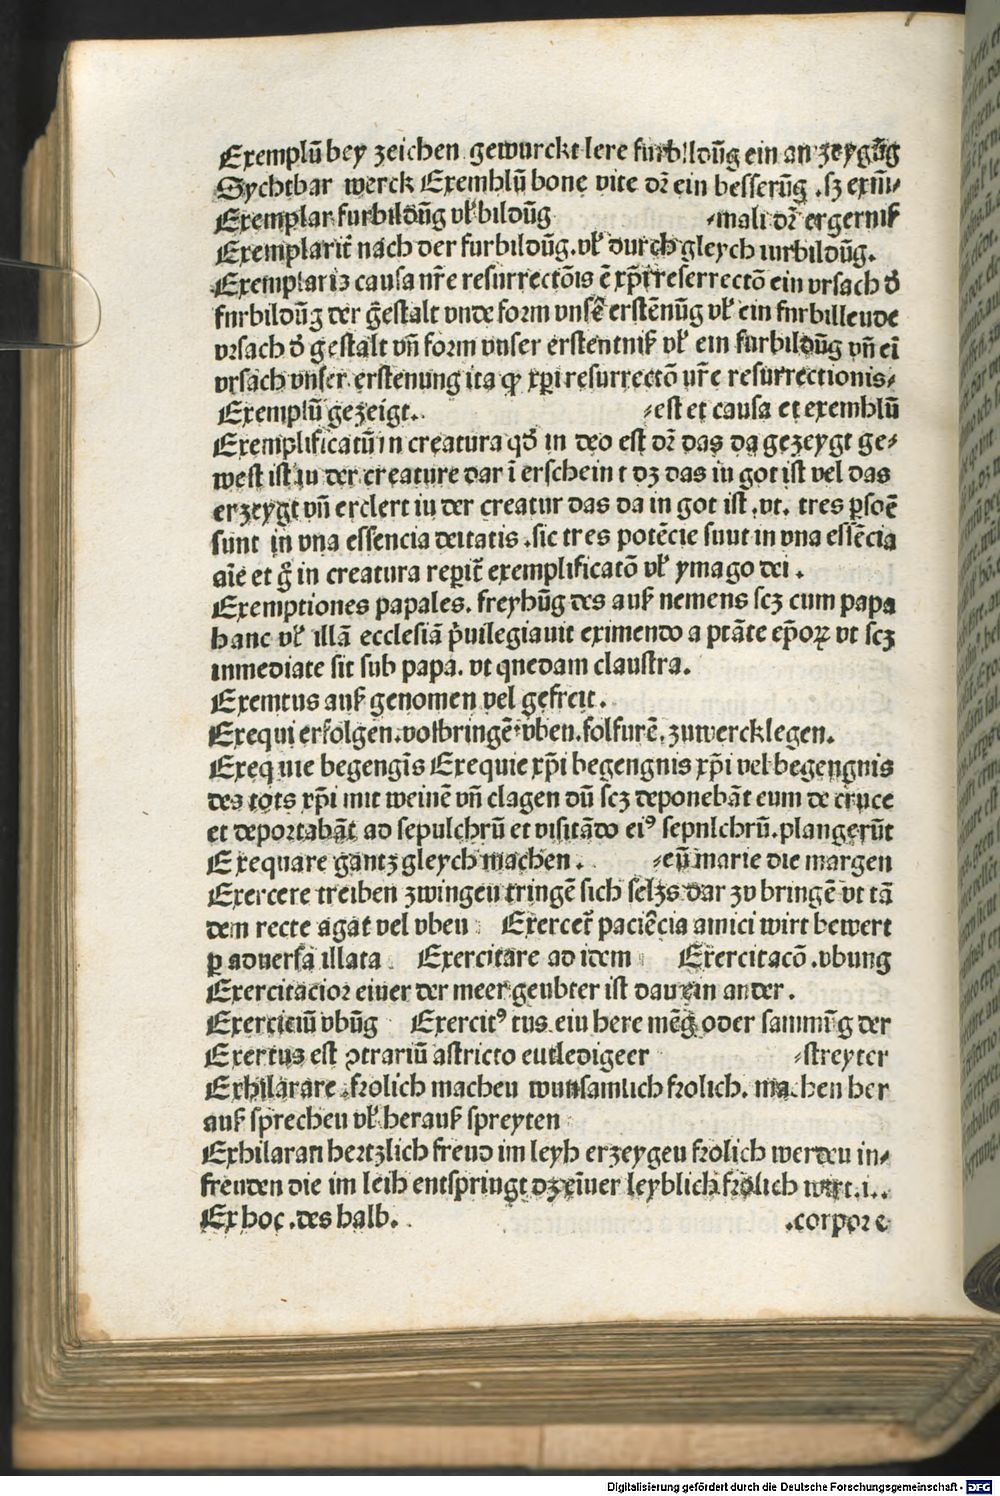 Exemplū bey zeichen gewurckt lere furbildūg ein an zeygūg
Sychtbar werck Exemblū bone vite dr̄ ein besserūg .sz exm̄/
Exemplar furbildūg vl̕ bildūg /mali dr̄ ergerniß
Exemplarit̄ nach der furbildūg .vl̕ durch gleych furbildūg.
Exemplaris causa nr̄e resurrectōis ē xp̄i reserrectō ein vrsach d̄
furbildūg der gestalt vnde form vnsē erstēnūg vl̕ ein furbillende
vrsach d̄ gestalt vn̄ form vnser erstentniß vl̕ ein furbildūg vn̄ eī
vrsach vnser erstenung ita ꝙ xp̄i resurrectō nr̄e resurrectionis/
Exemplū gezeigt. /est et causa et exemblū
Exemplificatū in creatura qd̄ in deo est dr̄ das da gezeygt ge/
west ist in der creature dar ī erscheint dz das in got ist vel das
erzeygt vn̄ erclert in der creatur das da in got ist .vt. tres ꝑsoē
sunt in vna essencia deitatis .sic tres potēcie sunt in vna essēcia
aīe et in creatura reꝑit̄ exemplificatō vl̕ ymago dei .
Exemptiones papales. freyhūg des auß nemens scz cum papa
hanc vl̕ illā ecclesiā p̄uilegiauit eximendo a ptāte ep̄oꝝ vt scz
inmediate sit sub papa. vt quedam claustra.
Exemtus auß genomen vel gefreit.
Exequi erfolgen.volbringē vben.folfurē. zuwercklegen.
Exequie begengīs Exequie xp̄i begengnis xp̄i vel begengnis
des tots xp̄i mit weinē vn̄ clagen dū scz deponebāt eum de cruce
et deportabāt ad sepulchrū et visitādo eiꝰ sepulchrū.plangerūt
Exequare gantz gleych machen. /eū marie die margen
Exercere treiben zwingen tringē sich selzs dar zv bringē vt tā
dem recte agat vel vben Exercet̄ paciēcia amici wirt bewert
ꝑ aduersa illata Exercitare ad idem Exercitacō .vbung
Exercitacior einer der meer geubter ist dan ein ander.
Exerciciū vbūg Exercitꝰ tus. ein here mēg oder sammūg der
Exertus est ꝯtrariū astricto entledigeer /streyter
Exhilarare .frolich machen wunsamlich frolich. machen her
auß sprechen vl̕ herauß spreyten
Exhilarari hertzlich freud im leyb erzeygen frolich werden in/
freuden die im leib entspringt dz eīner leyblich frolich wirt.i..
Ex hoc .des halb. .corpore
Digitalisierung gefördert durch die Deutsche Forschungsgemeinschaft - DFG